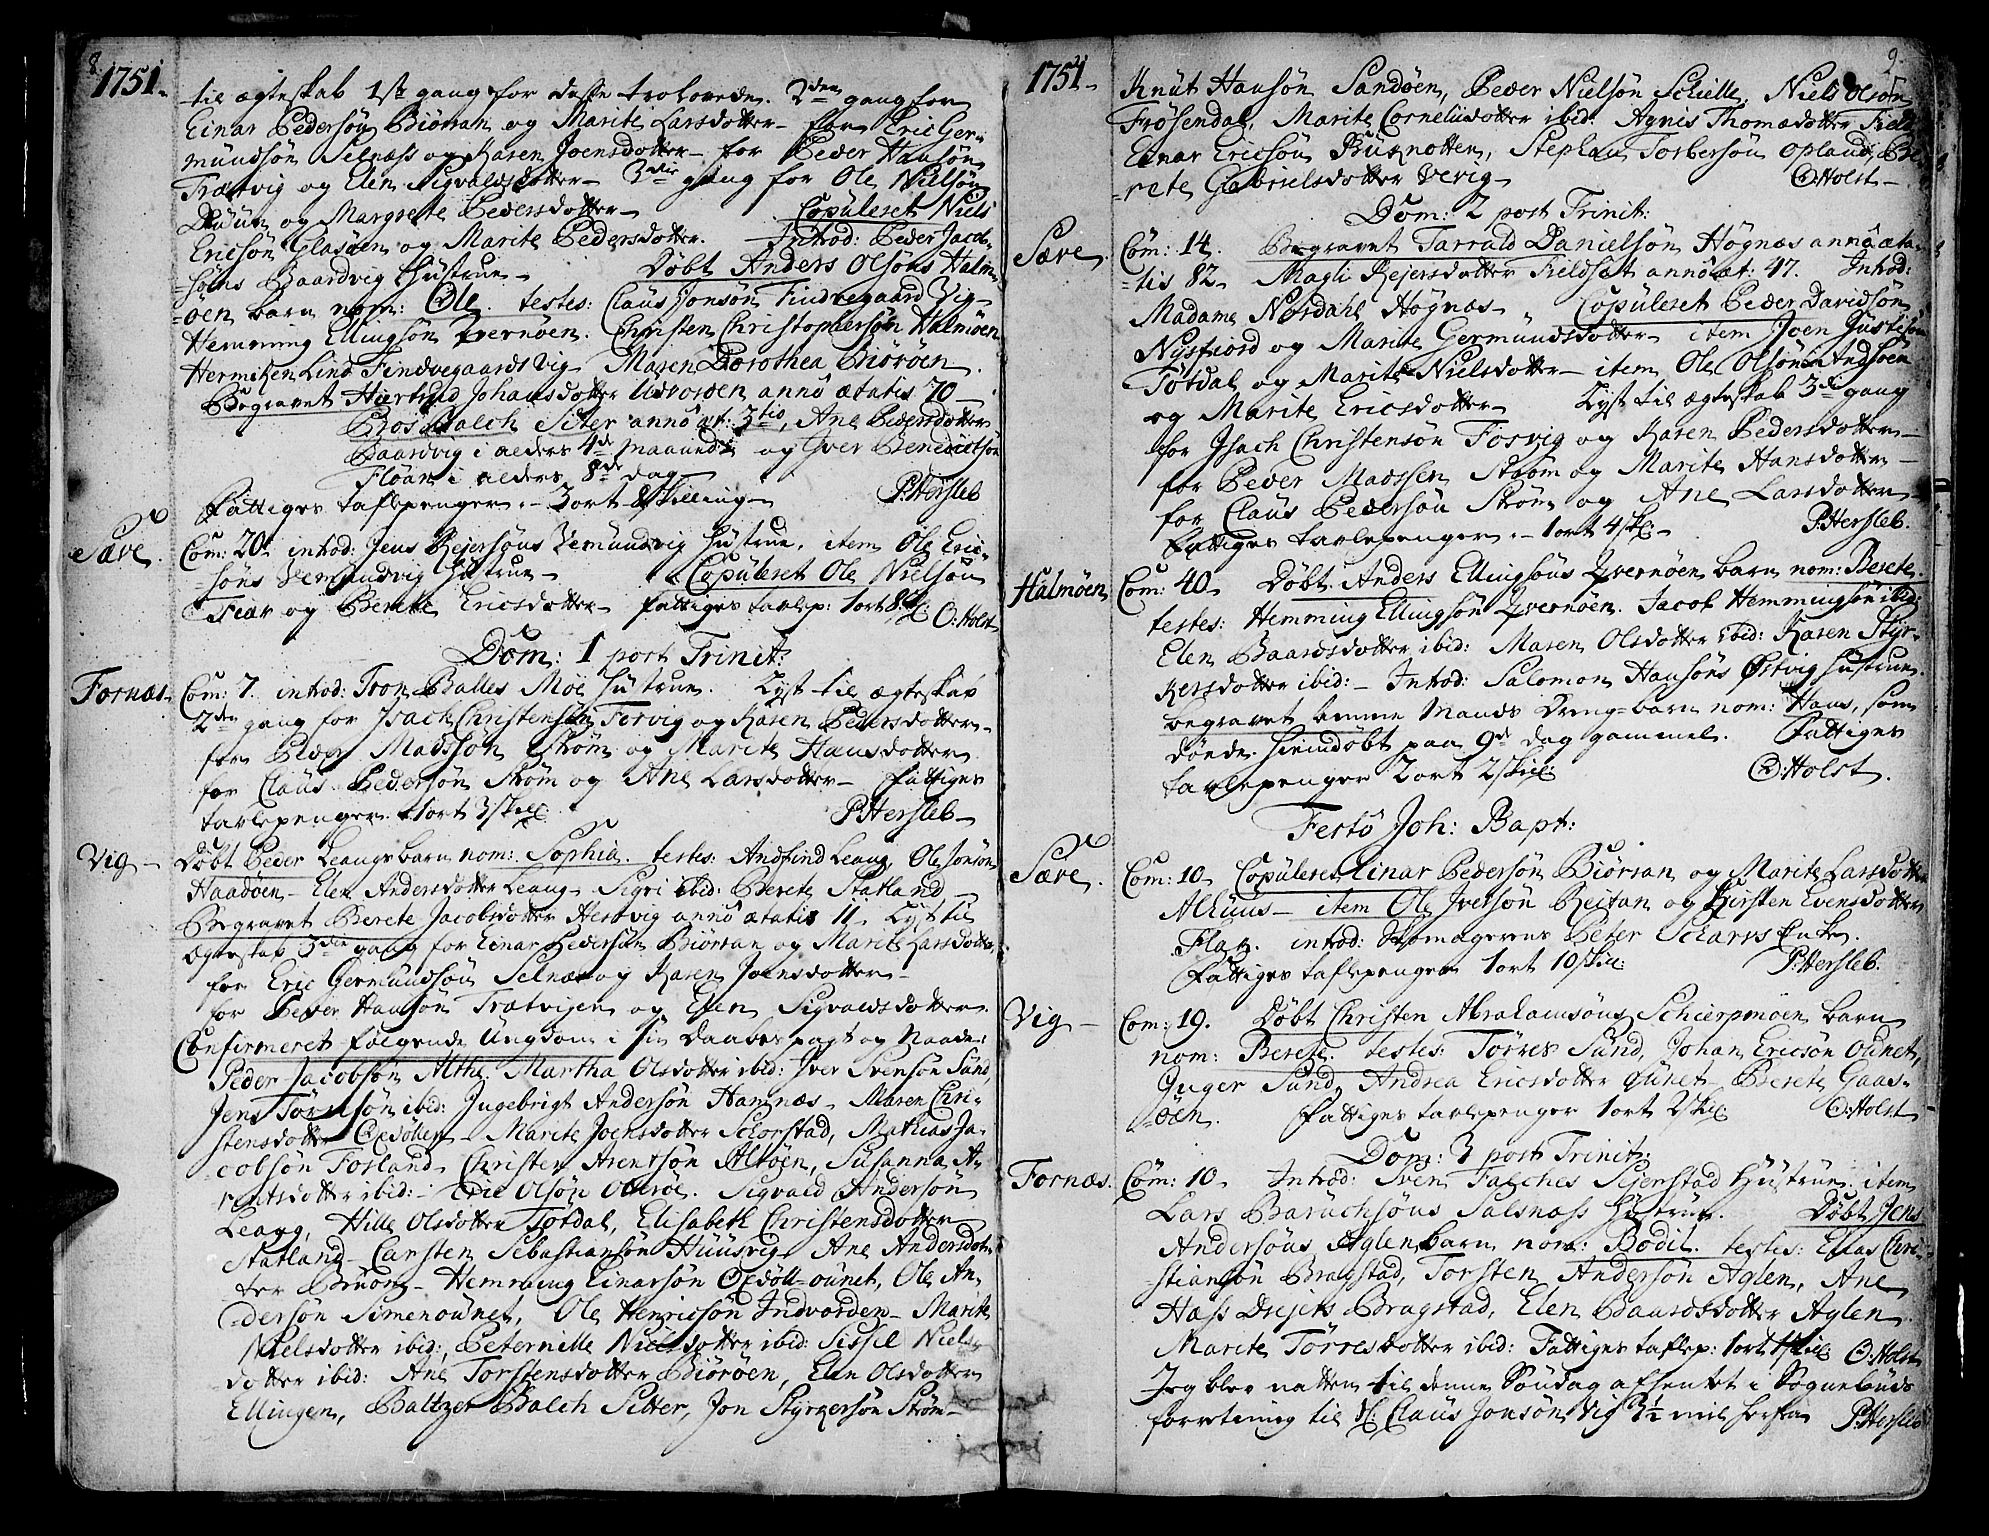 8.
1751.
til ægteskab 1ste gang for disse trolovede. 2den gang for
Einar Pedersøn Biørran og Marite Larsdotter – for Eric Ger-
mundsøn Selnæss og Karen Joensdotter – for Peder Hansøn
Trætvig og Elen Sigvaldsdotter – 3die gang for Ole Nielsøn
Duun og Margrete Pedersdotter – Copuleret Niels
Ericsøn Glasøen og Marite Pedersdotter. Introd: Peder Jacob-
søns Baardvig Hustrue – Døbt Anders Olsøns Halm-
øen barn nom: Ole. testes: Claus Jonsøn Findvegaard Vig –
Hemming Ellingsøn Qvernøen. Christen Christophersøn Halmøen
Hermeken Lind Findvegaards Vig Maren Dorothea Biørøen.
Begravet Hiertrud Johansdotter Udvorden anno ætatis 70 –
Balch Sitter anno æt: 3tio, Ane Pedersdotter
Baardvig i alders 4de maaned og Iver Benedictsøn
Floan i alders 8de dag –
Fattiges taflepenger. – 3 ort 8 skilling – P: Hersleb
Sæve.
Com: 20. introd: Jens Rejersøns Vemundvig Hustrue. item Ole Eric-
søns Vemundvig Hustrue – Copuleret Ole Nielsøn
Fear og Berete Ericsdotter – Fattiges tavlep: 1 ort 8 sk: O: Holst
Dom: 1 post Trinit:
Fornæs.
Com: 7. introd: Tron Balles Moe Hustrue. Lyst til ægteskab
2den gang for Isach Christensøn Forvig og Karen Pedersdotter –
for Peder Madssøn Strøm og Marite Hansdotter
for Claus Pedersøn Strøm og Ane Larsdotter – Fattiges
tavlepenger. 1 ort 3 skil: P: Hersleb –
Vig –
Døbt Peder Leangs barn nom: Sophia. testes: Andfind Leang, Ole Jonsøn
Haadøen – Elen Andersdotter Leang – Sigri ibid: Berete Statland –
Begravet Berete Jacobsdotter Hestvig anno ætatis 11. Lyst til
Ægteskab 3die gang for Einar Pedersøn Biørran og Marite Larsdotter
for Eric Germundsøn Selnæs og Karen Joensdotter –
for Peder Hansøn Trætvigen og Elen Sigvaldsdotter.
Confirmeret følgende Ungdom i sin Daabes pagt og Naade:
Peder Jacobsøn Althe. Martha Olsdotter ibid: Iver Svensøn Sund,
Jens Tørrisøn ibid: Ingebrigt Andersøn Hamnæs – Maren Chri-
stensdotter Opdøllen – Marite Joensdotter Schorstad, Mathias Ja-
cobsøn Forland. Christen Arentsøn Altøen, Susanna A-
rentsdotter ibid: – Eric Olsøn Olderøe. Sigvald Andersøn
Leang, Hille Olsdotter Tøtdal, Elisabeth Christensdotter
Statland – Carsten Sebastiansøn Huusvig – Ane Andersdot-
ter Bruøn – Hemming Einarsøn Opdøll-ounet, Ole An-
dersøn Simenounet, Ole Henricsøn Indvorden – Marite
Nielsdotter ibid:, Peternille Nielsdotter ibid: Sissel Niels-
dotter ibid: Ane Torstensdotter Biørøen, Elen Olsdotter
Ellingen, Baltzer Balch Sitter, Jon Styrkersøn Strøm –
9.
1751.
Knut Hansøn Sandøen, Peder Nielsøn Schielle, Niels Olsøn
Frøsendal, Marite Corneliidotter ibid: Agnis Thomædotter
Einar Ericsøn Buknotten, Stephan Torbersøn Opland, Be-
rete Gabrielsdotter Verig – O: Holst –
Dom: 2 post Trinit:
Sæve.
Com: 14. Begravet Tarrald Danielsøn Høgnæs anno æta-
tis 82. Magli Rejersdotter Fieldsæt anno æt: 47. Introd:
Madame Nordahl Høgnæs – Copuleret Peder Davidsøn
Nysfiord og Marite Germundsdotter item Joen Justesøn
Tøtdal og Marite Nielsdotter – item Ole Olsøn Indsøen
og Marite Ericsdotter – Lyst til ægteskab 3die gang
for Isach Christensøn Forvig og Karen Pedersdotter –
for Peder Madssen Strøm og Marite Hansdotter –
for Claus Pedersøn Strøm og Ane Larsdotter –
Fattiges tavlepenger. – 1 ort 4 sk: – P: Hersleb.
Halmøen
Com: 40. Døbt Anders Ellingsøns Qvernøen barn nom: Berete.
testes: Hemming Ellingsøn Qvernøen. Jacob Hemmingsøn ibid:
Elen Baardsdotter ibid: Maren Olsdotter ibid: Karen Styr-
kersdotter ibid: – Introd: Salomon Hansøns Østvig Hustrue.
begravet samme Mands Dreng-barn nom: Hans, som
døde hiemdøbt paa 9de dag gammel. Fattiges
tavlepenger 2 ort 2 skil: O: Holst.
Festo Joh: Bapt:
Sæve.
Com: 10. Copuleret Einar Pedersøn Biørran og Marite Larsdotter
Alhuus – item Ole Iversøn Reitan og Kirsten Evensdotter
Flag. introd: Skomagerens Peter Scharvs Enke.
Fattiges taflepenger 1 ort 10 skil: P: Hersleb.
Vig –
Com: 19. Døbt Christen Abrahamsøns Schierpmoen barn
nom: Berete. testes: Tørres Sund, Johan Ericsøn Ounet,
Inger Sund, Andrea Ericsdotter Ounet – Berete Gaas-
øen. Fattiges tavlepenger 1 ort 2 skil: O: Holst
Dom: 3 post Trinit:
Fornæs.
Com: 10. Introd: Sven Falches Sejerstad Hustrue. item
Lars Baruchsøns Salsnæss Hustrue. Døbt Jens
Andersøns Aglen barn nom: Bodil. testes: Elias Chri-
stiansøn Bragstad, Torsten Andersøn Aglen, Ane
Hass Drejers Bragstad, Elen Baardsdotter Aglen.
Marite Tørresdotter ibid: Fattiges taflep: 1 ort 4 skil: O: Holst
Jeg blev natten til denne Søndag afhentet i Sognebuds
forretning til Sl: Claus Jonsøn Vig 3½ mil herfra P: Hersleb